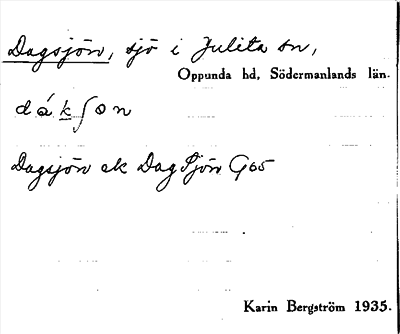 Dagsjön, sjö i Julita sn,
Oppunda hd, Södermanlands län.
dákʃon
Dagsjön ek Dag Sjön G65
Karin Bergström 1935.